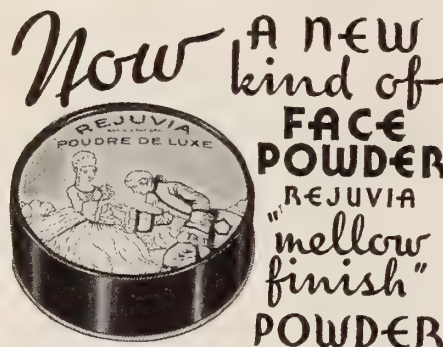 Now A NEW
kind of
FACE
POWDER
REJUVIA
"mellow
finish"
POWDER
REJUVIA
POUDRE DE LUXE